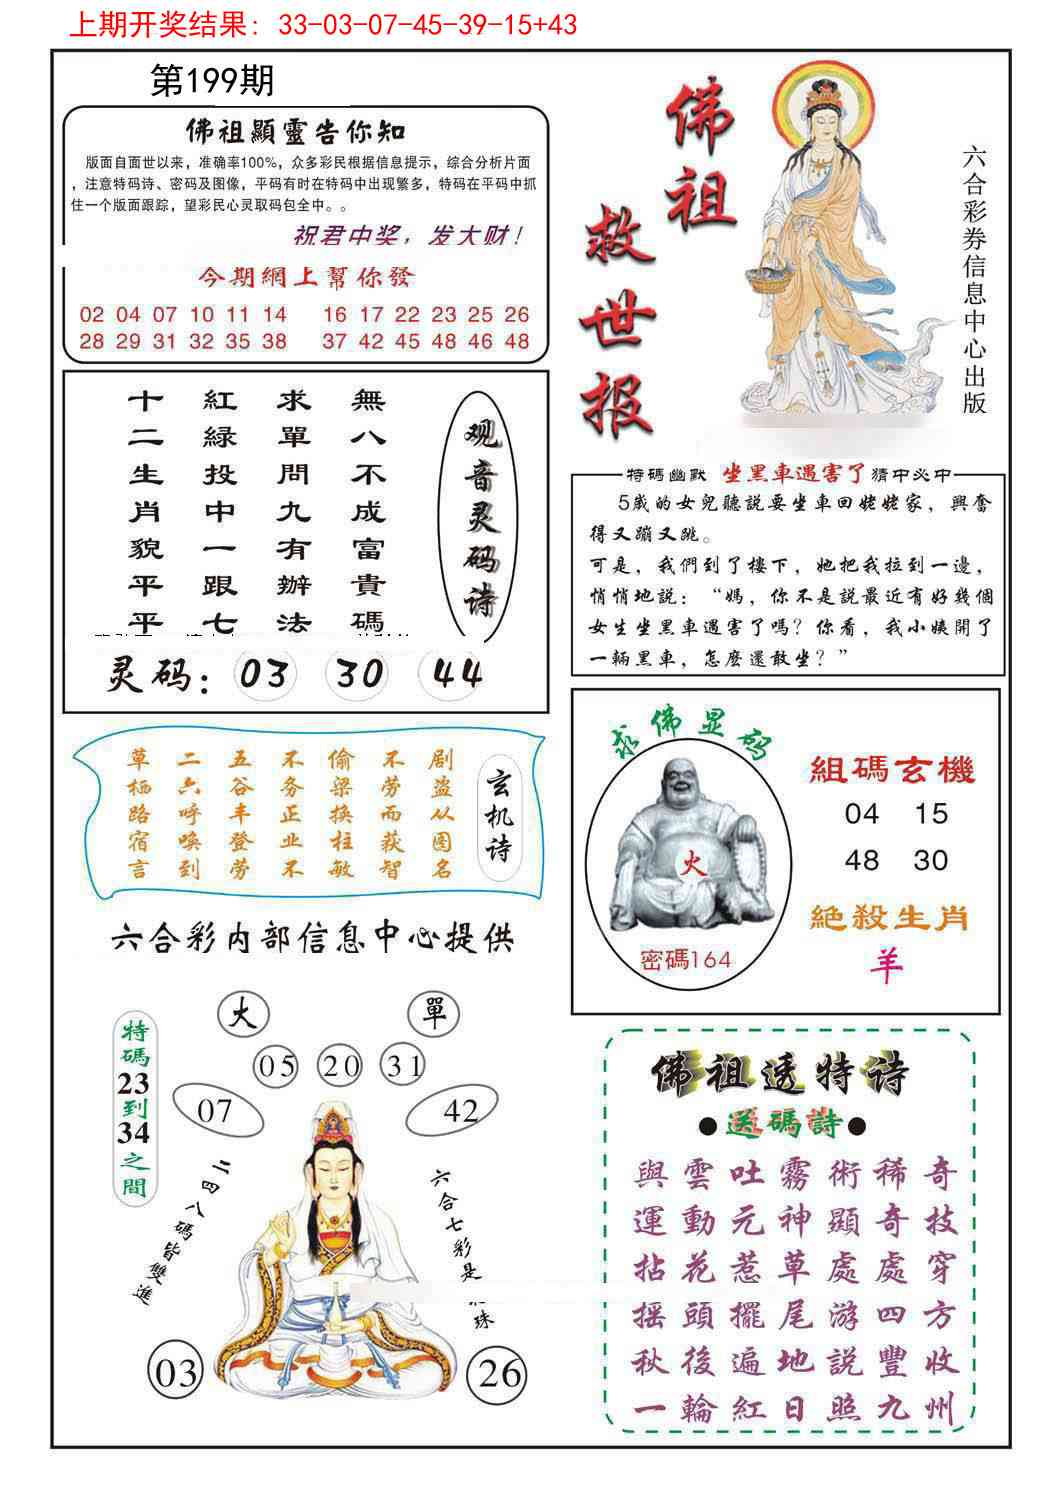 上期开奖结果: 33-03-07-45-39-15+43
第199期
佛祖顯靈告你知
版面自面世以来，准确率100%，众多彩民根据信息提示，综合分析片面
，注意特码诗、密码及图像，平码有时在特码中出现繁多，特码在平码中抓
住一个版面跟踪，望彩民心灵取码包全中。。
祝君中奖，发大财！
今期網上幫你發
02 04 07 10 11 14 16 17 22 23 25 26
28 29 31 32 35 38 37 42 45 48 46 48
佛祖救世报
六合彩券信息中心出版
观音灵码诗
無八不成富貴碼
求單問九有辦法
紅綠投中一跟七
十二生肖貌平平
灵码：03 30 44
特碼幽默 坐黑車遇害了 猜中必中
5歲的女兒聽説要坐車回姥姥家，興奮
得又蹦又跳。
可是，我們到了樓下，她把我拉到一邊，
悄悄地説：“媽，你不是説最近有好幾個
女生坐黑車遇害了嗎？你看，我小姨開了
一輛黑車，怎麽還敢坐？”
玄机诗
剧盗从图名
不劳而获智
偷梁换柱敏
不务正业不
五谷丰登劳
二六呼唤到
草栖路宿言
求佛显码
火
密碼164
組碼玄機
04 15
48 30
絶殺生肖
羊
六合彩内部信息中心提供
火
單
05 20 31
07
42
特碼23到34之間
二四八碼皆雙進
六合七彩是
珠
03
26
佛祖透特诗
●送碼詩●
與雲吐霧術稀奇
運動元神顯奇技
拈花惹草處處穿
摇頭擺尾游四方
秋後遍地説豐收
一輪紅日照九州